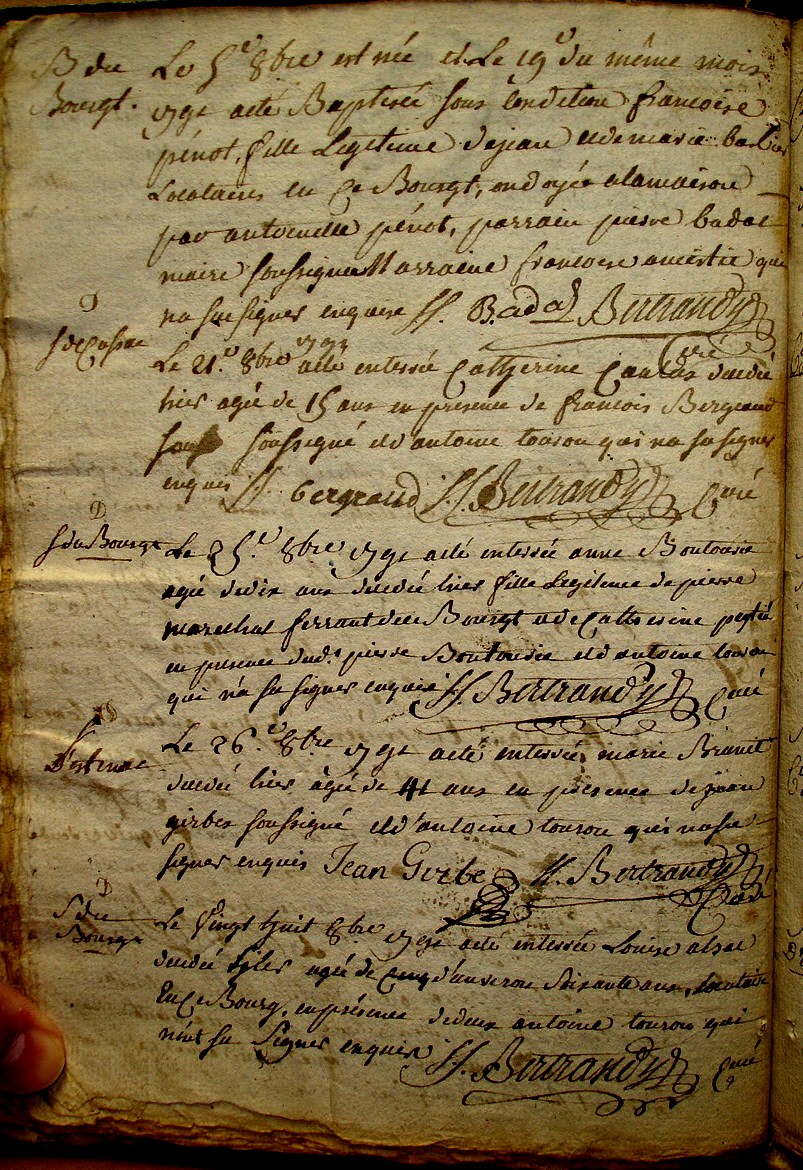 B du
Bourgt.
Le 5e 8bre est née et Le 19e du même mois
1791 a été Baptisée sous Condition francoise
pénot, fille Legitime de jean et de marie
Locataires en Ce Bourgt, ondoyée a la maison
par antoinette pénot, parrain pierre badal
maire soussigné Marraine francoise qui
na su signer enquise ff. Badal Bertrandy
Curé
S de
Le 21e 8bre 1791 a été enterrée Catherine decedée
hier agée de 15 ans en presence de francois Bergeaud
soussigné et d'antoine touron qui na su signer
enquis ff bergeaud ff. Bertrandy Curé
S du Bourgt
Le 25e 8bre 1791 a été enterrée anne Boutourie
agée de dix ans decedée hier fille Legitime de pierre
marechal ferrant du Bourgt et de Catherine
en presence dud. pierre Boutourie et d'antoine touron
qui n'a su signer enquis ff. Bertrandy Curé
S
Le 26e 8bre 1791 a été enterrée marie
decedée hier agée de 41 ans en presence de jean
girbes soussigné et d'antoine touron qui na su
signer enquis Jean Girbe ff. Bertrandy
Curé
S du
Bourg
Le Vingt huit 8bre 1791 a été enterrée Louise
decedée hier agée de d'environ soixante ans, Locataire
En Ce Bourg, en présence de antoine touron qui
n'ont su Signer enquis ff. Bertrandy Curé